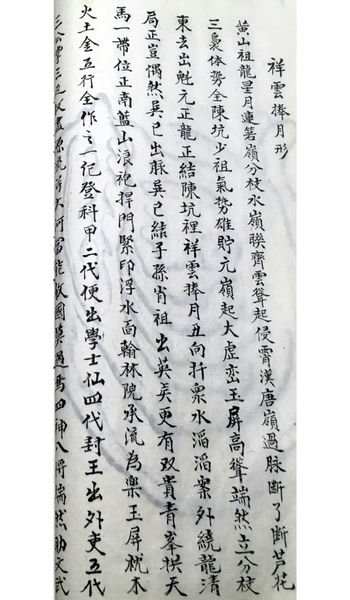 祥雲捧月形
黄山祖龍星月連箬嶺分枝水嶺聯齊雲聳起侵霄漢唐嶺過脉断了断芦花
三裊体勢全陳坑少祖氣勢雄貯元嶺起大虚峦玉屏高聳端然立分枝
東去出魁元正龍正結陳坑裡祥雲捧月丑向扦衆水滔滔案外繞龍清
局正豈偶然巽巳出脉巽巳結子孫肖祖出英矣更有双貴青峯拱天
馬一帶位正南藍山浪袍捍門緊印浮水面翰林院承流為樂玉屏枕木
火土金五行全作之一紀登科甲二代便出學士仙四代封王出外吏五代
三公零三